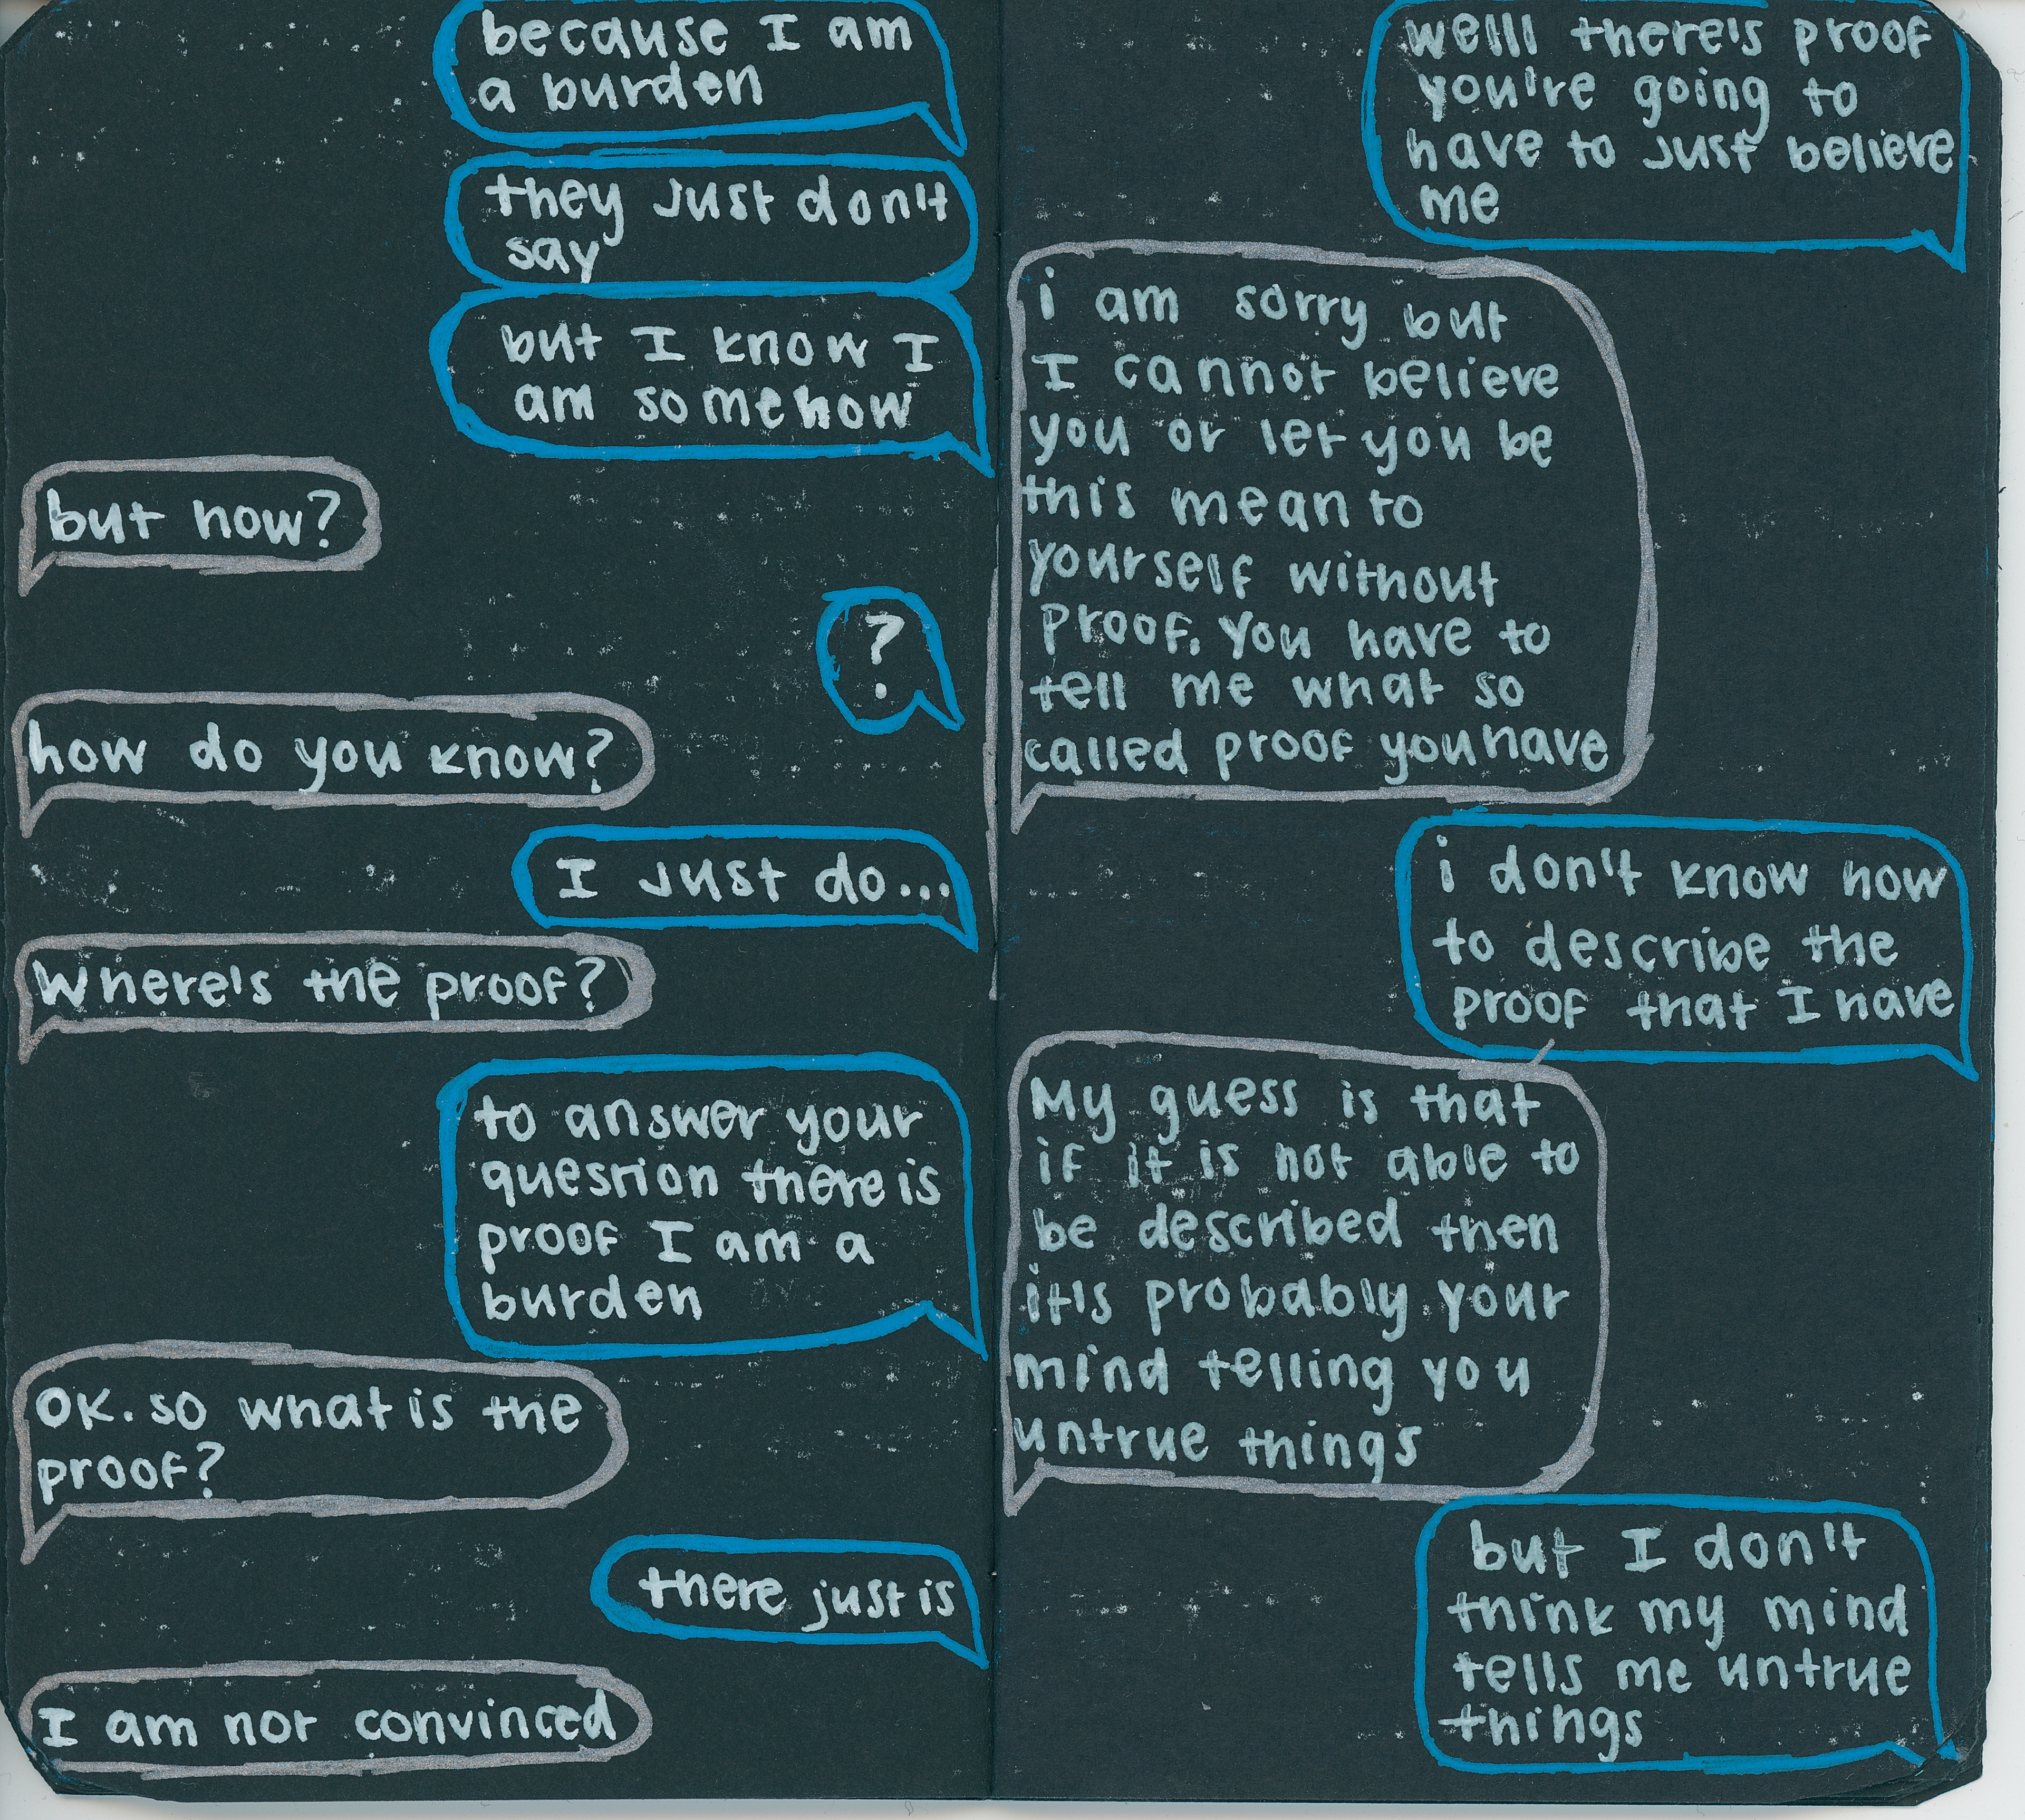 because I am
a burden
they just don't
say
but I know I
am somehow
but how?
?
how do you know?
I just do...
Where's the proof?
to answer your
question there is
proof I am a
burden
OK. so what is the
proof?
there just is
I am not convinced
welll there's proof
you're going to
have to just believe
me
i am sorry but
I cannot believe
you or let you be
this mean to
yourself without
proof. You have to
tell me what so
called proof you have
i don't know how
to describe the
proof that I have
My guess is that
if it is not able to
be described then
it's probably your
mind telling you
untrue things
but I don't
think my mind
tells me untrue
things